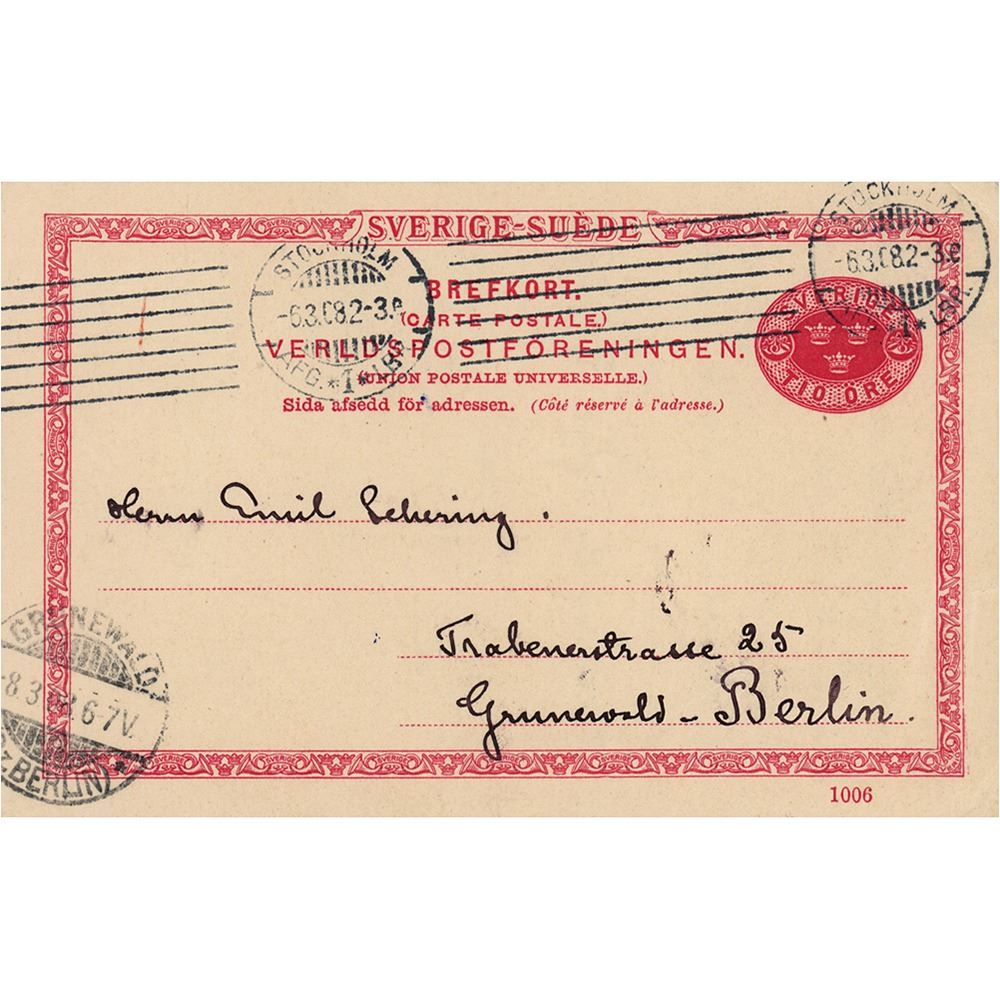 SVERIGE-SUÈDE
BREFKORT.
(CARTE POSTALE.)
VERLDSPOSTFÖRENINGEN.
(UNION POSTALE UNIVERSELLE.)
Sida afsedd för adressen. (Côté réservé à l'adresse.)
STOCKHOLM
-6.3.082-3.e
AFG. *1* LBR.
STOCKHOLM
-6.3.082-3.e
*1* LBR.
SVERIGE
TIO ÖRE
Herrn Emil Schering.
Trabenerstrasse 25
Grunewald - Berlin.
GRUNEWALD
-8.3.08.6-7V.
(BZ. BERLIN) *
1006